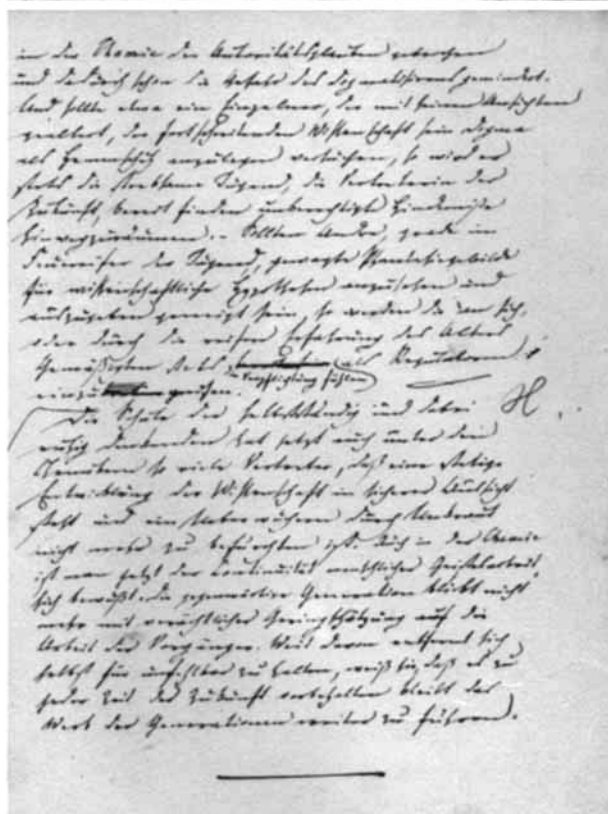 in der Chemie der Autoritätsglauben gebrochen
und dadurch schon die Gefahr des Dogmatisirens gemindert.
Und sollte etwa ein Einzelner, der mit seinen Ansichten
gealtert, der fortschreitenden Wissenschaft sein Dogma
als Hemmschuh anzulegen versuchen, so wird er
stets die strebsame Jugend, die Vertreterin der
Zukunft, bereit finden unberechtigte Hindernisse
hinwegzuräumen. – Sollten Andre, grade im
Feuereifer der Jugend, gewagte Phantasiegebilde
für wissenschaftliche Hypothesen anzusehen und
auszugeben geneigt sein, so werden die an sich,
oder durch die reifere Erfahrung des Alters
Gemässigten stets als Regulatoren
einzugreifen. Verpflichtung fühlen
Die Schule der selbstständig und dabei
ruhig Denkenden hat jetzt auch unter den
Chemikern so viele Vertreter, daß eine stetige
Entwicklung der Wissenschaft in sicherer Aussicht
steht und ein Ueberwuchern durch Unkraut
nicht mehr zu befürchten ist. Auch in der Chemie
ist man jetzt der Continuität menschlicher Geistesarbeit
sich bewußt. Die gegenwärtige Generation blickt nicht
mehr mit verächtlicher Geringschätzung auf die
Arbeit der Vorgänger. Weit davon entfernt sich
selbst für unfehlbar zu halten, weiß sie, daß es zu
jeder Zeit der Zukunft vorbehalten bleibt das
Werk der Generationen weiter zu führen.